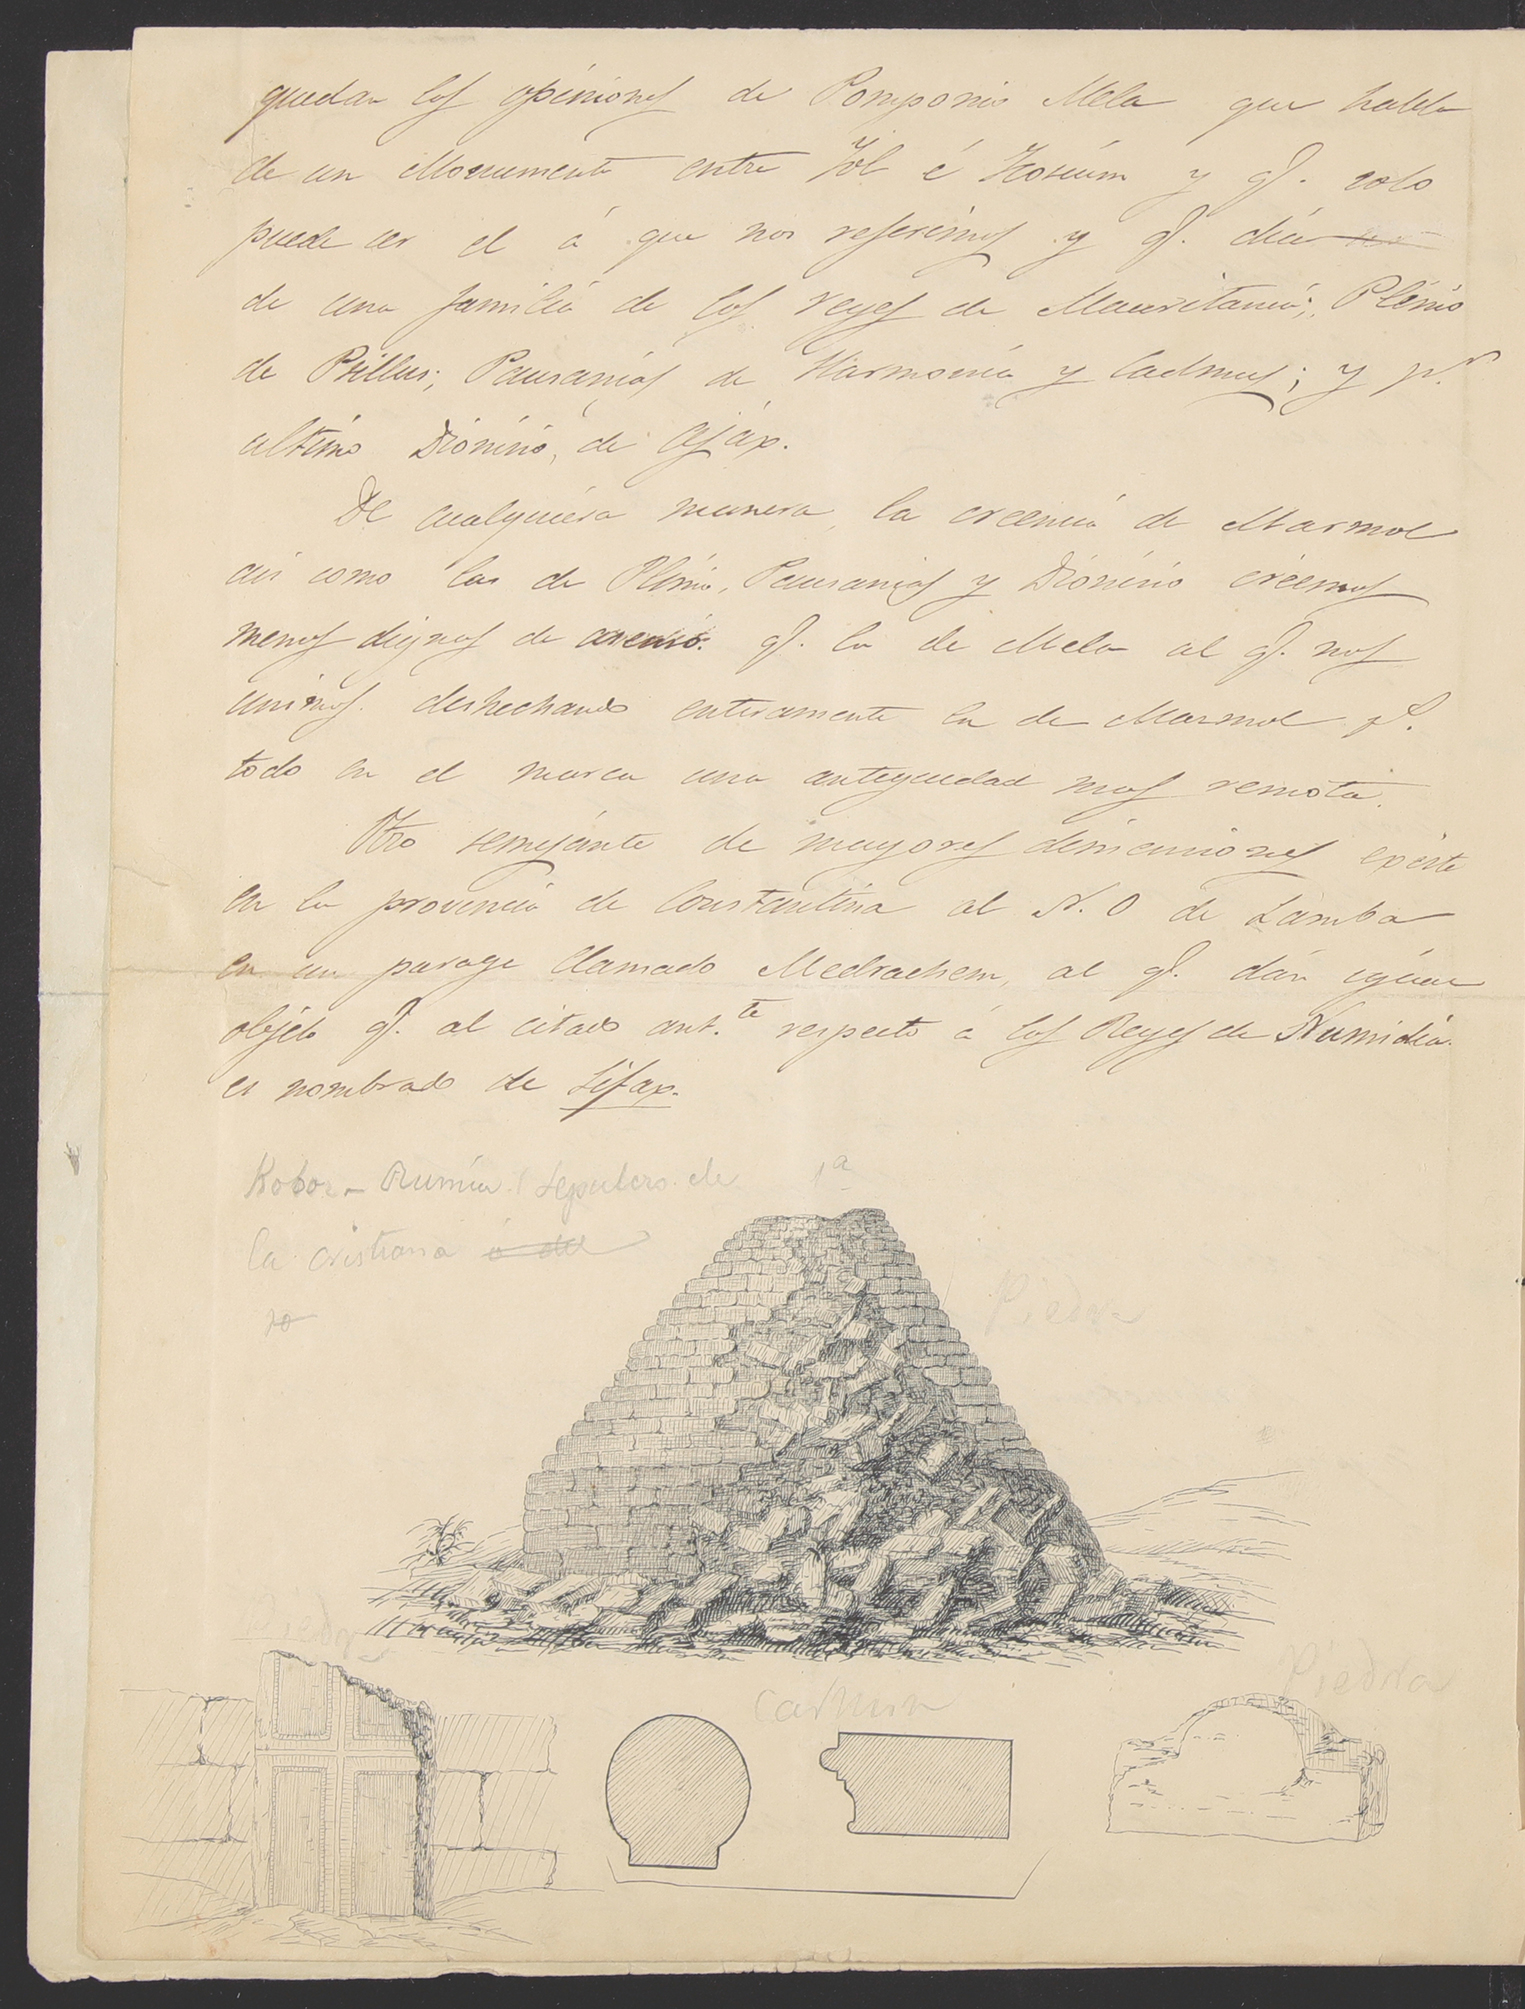 quedan las opiniones de Pomponio Mela que habla
de un Monumento entre Yol é Icosium y q. solo
puede ser el á que nos referimos y q. dice
de una familia de los reyes de Mauritania; Plinio
de Psillus; Pausanias de Harmonia y Cadmus; y p.r
ultimo Dionisio, de Ajáx.
De cualquiera manera, la creencia de Marmol
asi como las de Plinio, Pausanias y Dionisio creemos
menos dignas de q. la de Mela al q. nos
unimos. deshechando enteramente la de Marmol p.
todo en el marca una antiguedad mas remota.
Otro semejante de mayores dimenciones existe
en la provincia de Constantina al N. O de Lamba
en un parage llamado Medrachem, al q. dán igual
objeto q. al citado ant.te respecto á los Reyes de Numidia.
es nombrado de Sifax.
Kobor-Rumia (sepulcro de 1a
la cristiana ó del
ro
Piedra
Piedra
Carmin
Piedra